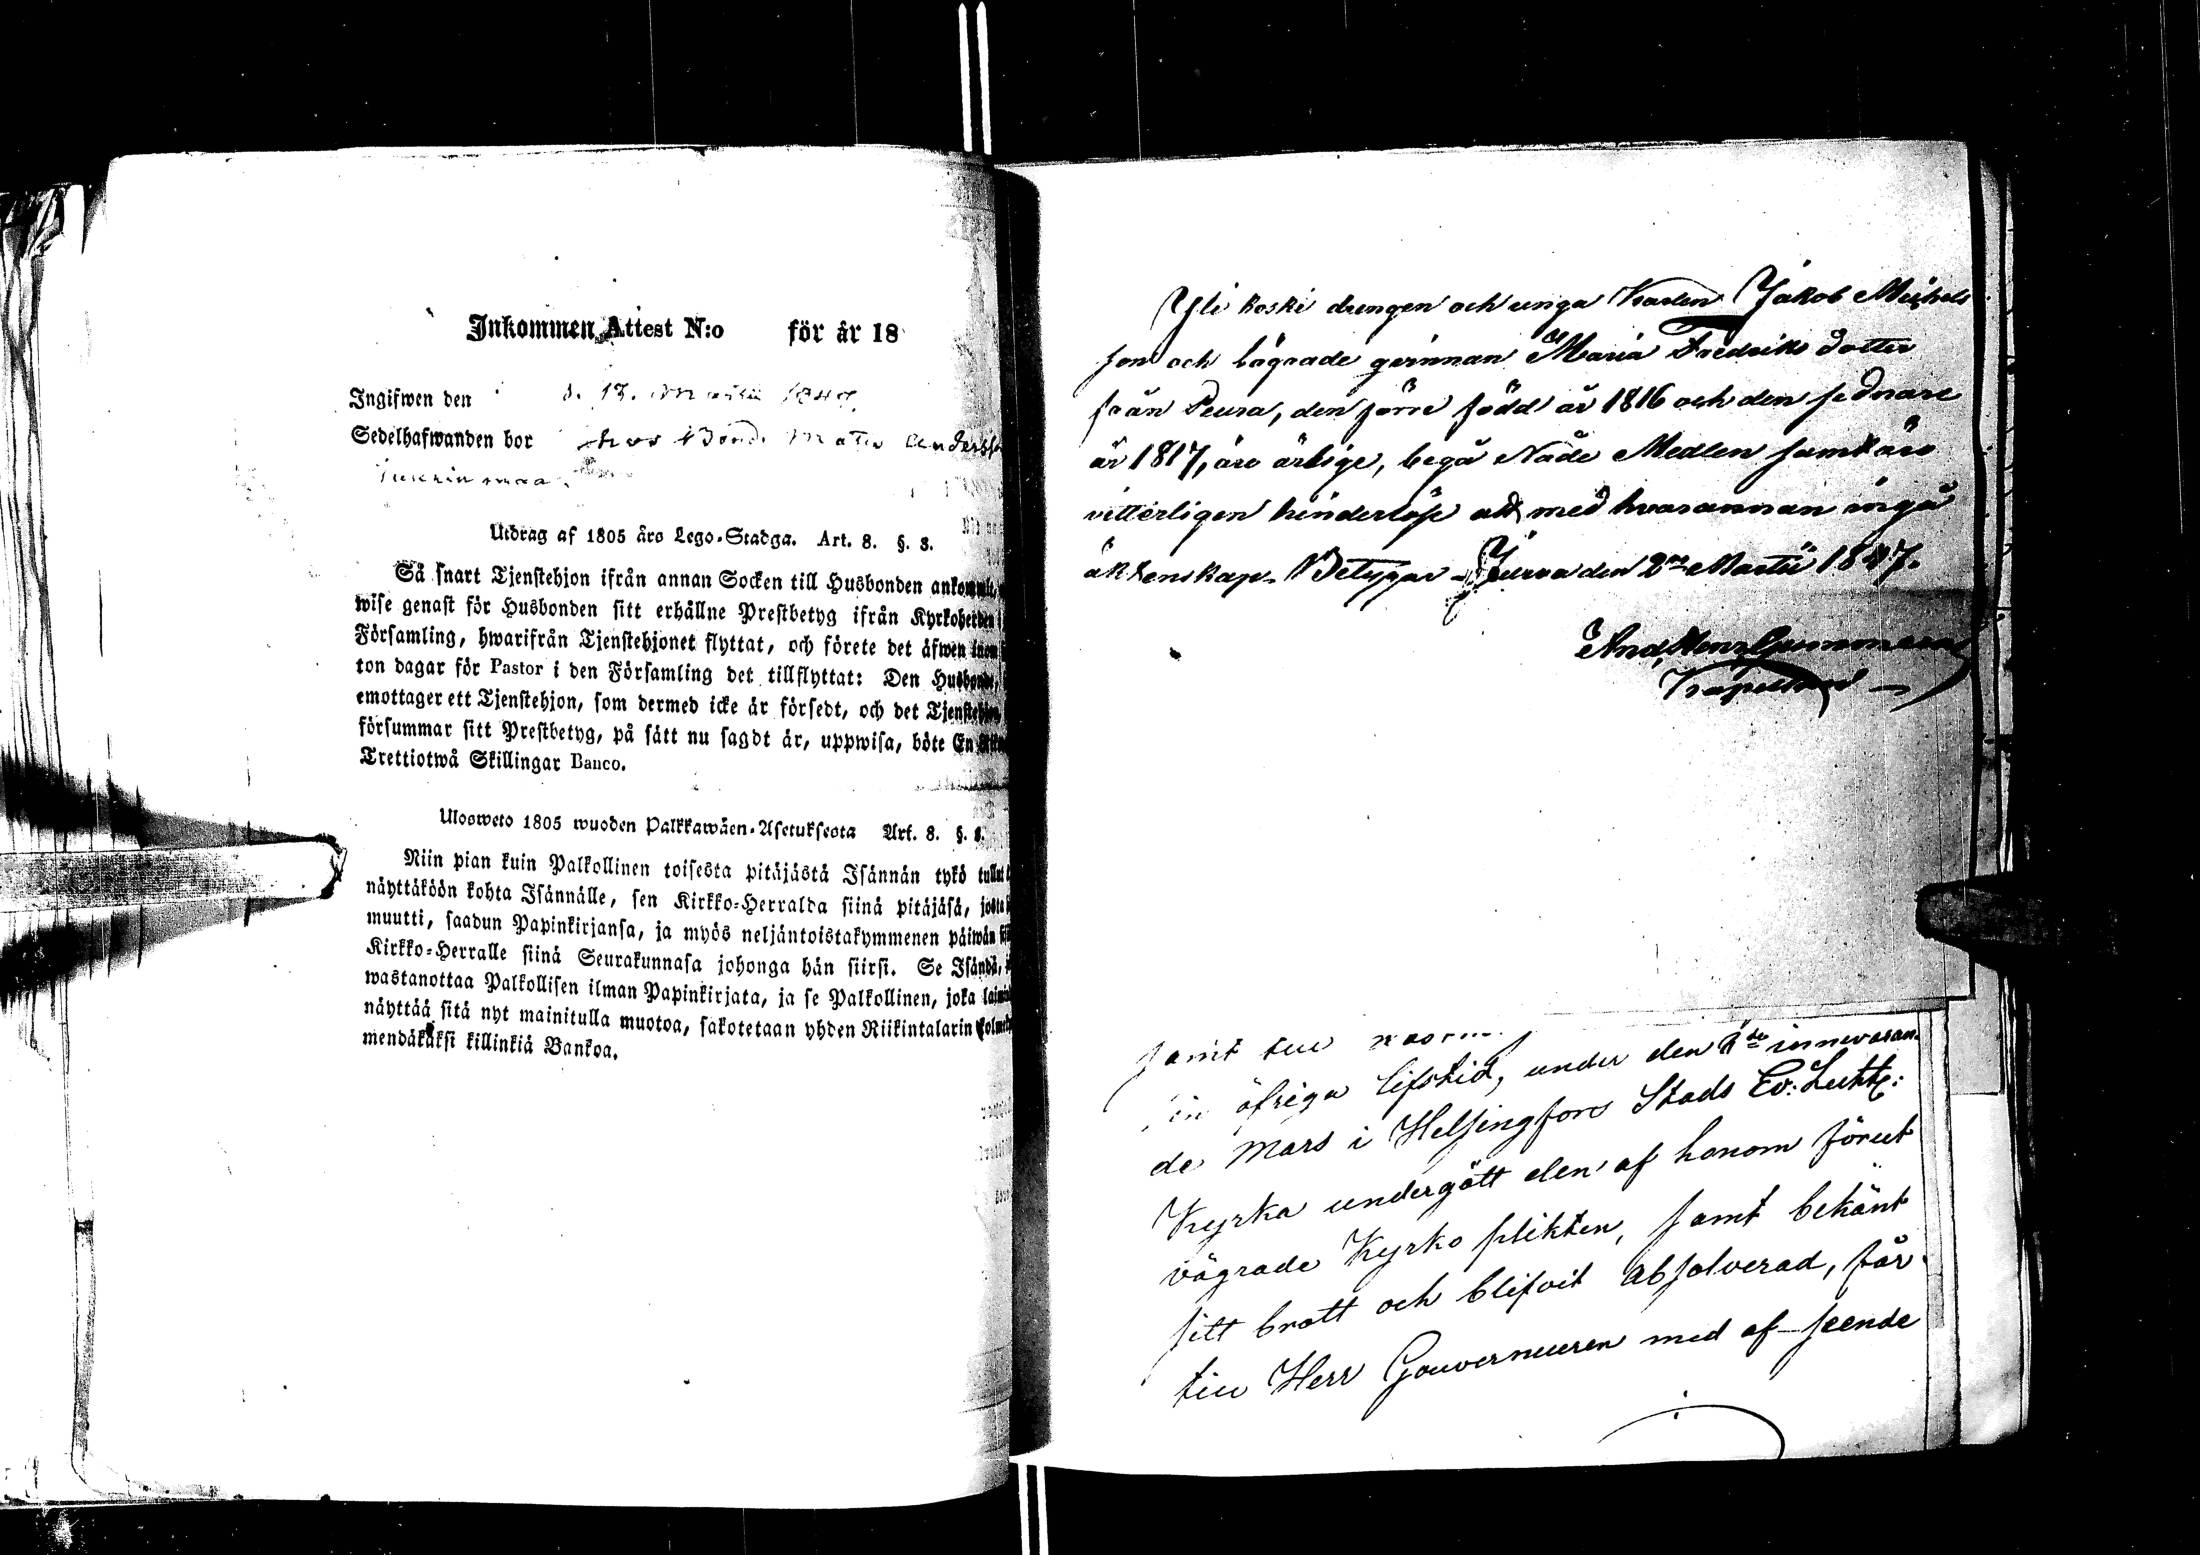 Inkommen Attest N:o för år 18
Ingifwen den d. 13. Martii 1847
Sedelhafwanden bor hos Bond. Matts Anders
Utdrag af 1805 års Lego-Stadga. Art. 8. §. 8.
Så snart Tjenstehjon ifrån annan Socken till Husbonden
wise genast för Husbonden sitt erhållne Prestbetyg ifrån Kyrkoherden
Församling, hwarifrån Tjenstehjonet flyttat, och förete det äfwen inom
ton dagar för Pastor i den Församling det tillflyttat: Den Husbonde,
emottager ett Tjenstehjon, som dermed icke är försedt, och det Tjenstehjon
försummar sitt Prestbetyg, på sätt nu sagdt är, uppwisa, böte En
Trettiotwå Skillingar Banco.
Ulosweto 1805 wuoden Palkkawäen-Asetuksesta Art. 8. §. 8.
Niin pian kuin Palkollinen toisesta pitäjästä Isännän tykö tullut
näyttäköön kohta Isännälle, sen Kirkko-Herralda siinä pitäjäsä, josta
muutti, saadun Papinkirjansa, ja myös neljäntoistakymmenen päiwän
Kirkko-Herralle siinä Seurakunnasa johonga hän siirsi. Se Isändä,
wastanottaa Palkollisen ilman Papinkirjata, ja se Palkollinen, joka
näyttää sitä nyt mainitulla muotoa, sakotetaan yhden Riikintalarin
mendäkaksi killinkiä Bankoa.
Yli koski drengen och unga Karlen Jakob Michels
son och lägrade qvinnan Maria Fredriks dotter
från Peura, den förre född år 1816 och den sednare
år 1817, äro ärlige, begå Nåde Medlen samt äro
vitterligen hinderlöse att med hvarannan ingå
äktenskap. Betygar Jurva den 2 Martii 1847.
And. Gummerus
Kapellan
samt
sin öfriga lifstid, under den 1de innevaran-
de Mars i Helsingfors Stads Ev: Luth:
Kyrka undergått den af honom förut
vägrade Kyrko plikten, samt bekänt
sitt brott och blifvit absolverad, får
till Herr Gouverneuren med af-seende